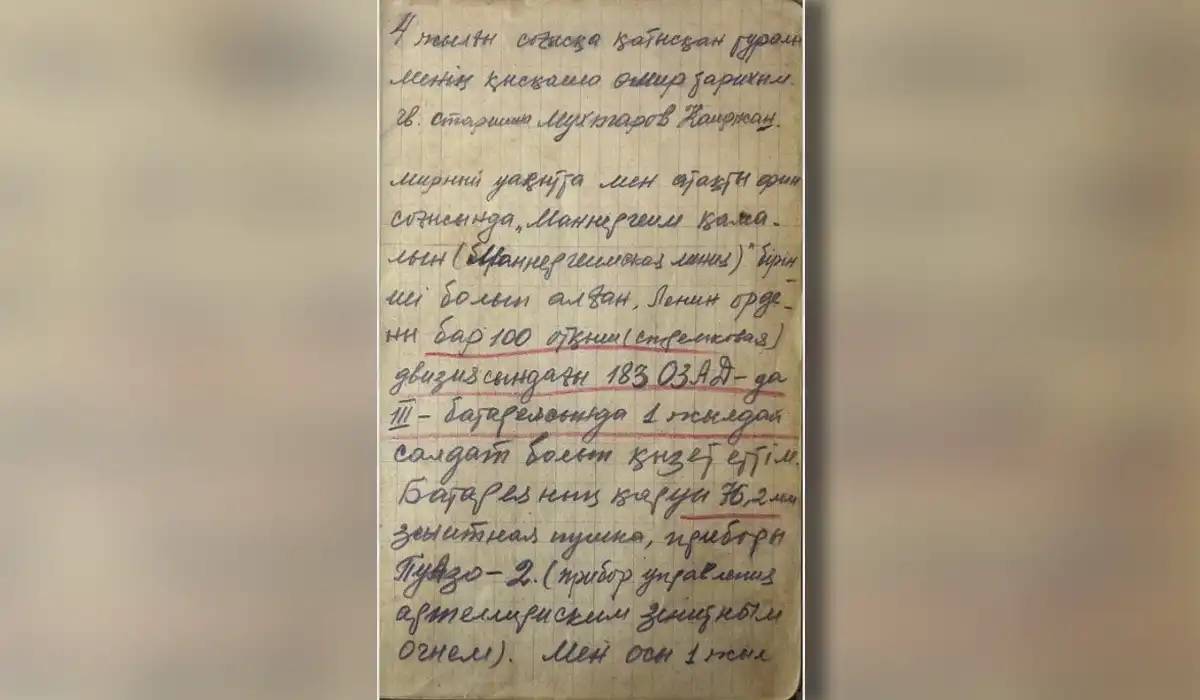 4 жылғы соғысқа қатысқан туралы
менің қысқаша өмир тарихым.
гв. старшина Мухтаров Каиржан.
мирный уақытта мен атақты фин
соғысында „Маннергеим қама-
лын (Маннергеимская линия)" бірін-
ші болып алған, Ленин орде-
ні бар 100 атқыш (стрелковая)
двизиясындағы 183 ОЗАД-да
III - батареясында 1 жылдай
салдат болып қызет еттім.
Батареяның қаруы 76,2 мм
зенитная пушка, приборы
ПУАЗО-2. (прибор управления
артеллириским зенитным
огнем). Мен осы 1 жыл